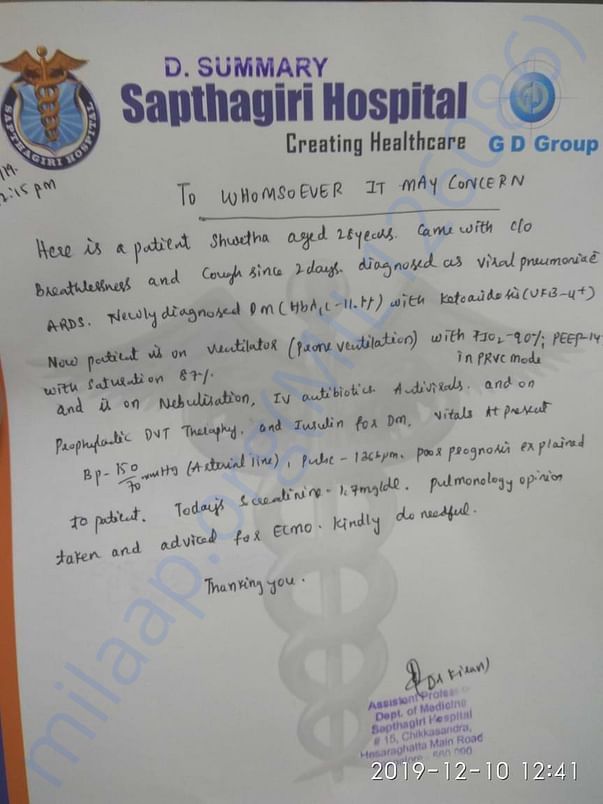 D. SUMMARY
Sapthagiri Hospital
Creating Healthcare
G D Group
SAPTHAGIRI HOSPITAL
2:15 pm
TO WHOMSOEVER IT MAY CONCERN
Here is a patient Shwetha aged 28years. Came with c/o
Breathlessness and Cough since 2days. diagnosed as viral pneumoniae
ARDS. Newly diagnosed DM (HbA1c-11.) with Ketoacidosis (UFB-4+)
Now patient is on ventilator (Prone ventilation) with FIO2-90%, PEEP-14
in PRVC mode
with Saturation 87%.
and is on Nebulisation, IV antibiotics Antivirals. and on
Prophylactic DVT Theraphy. and Insulin for Dm. Vitals At present
Bp- 150/70 mmHg (Arterial line), Pulse - 136bpm. poor prognosis explained
to patient. Today's S creatinine- 1.7mg/dl. Pulmonology opinion
taken and adviced for ECMO. kindly do needful.
Thanking you.
Dr Kiran)
Assistant Profes
Dept. of Medicine
Sapthagiri Hospital
# 15, Chikkasandra,
Hesaraghatta Main Road
2019-12-10 12:41
milaap.org(MIL126086)